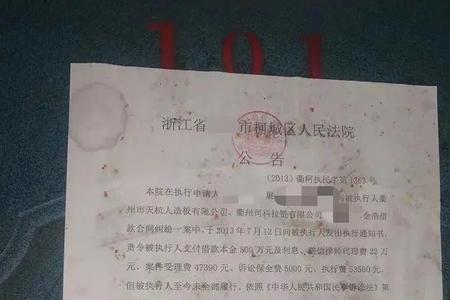 101
浙江省 市柯城区人民法院
公 告
(2013)衢柯执民字第1363号
本院在执行申请人 展 被执行人衢
州市天杭人造板有限公司、衢州可科拉链有限公司 金浩借
款合同纠纷一案中，于2013年7月12日向被执行人发出执行通知书，
责令被执行人支付借款本金500万元及利息、赔偿律师代理费22万
元、案件受理费47390元、诉讼保全费5000元、执行费53500元，
但被执行人至今未给部履行，依照《中华人民共和国民事诉讼法》